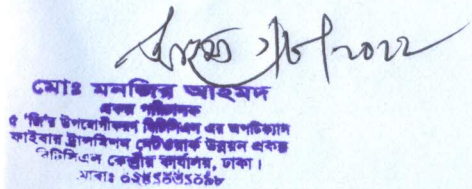 ২০২২
মোঃ মনজির আহমদ
প্রকল্প পরিচালক
৫ 'জি'র উপযোগীকরণ বিটিসিএল এর অপটিক্যাল
ফাইবার ট্রান্সমিশন নেটওয়ার্ক উন্নয়ন প্রকল্প
বিটিসিএল কেন্দ্রীয় কার্যালয়, ঢাকা।